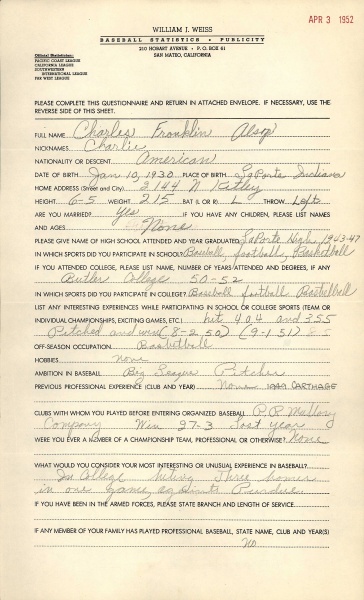 APR 3 1952
WILLIAM J. WEISS
BASEBALL STATISTICS • PUBLICITY
210 HOBART AVENUE • P. O. BOX 61
SAN MATEO, CALIFORNIA
Official Statistician:
PACIFIC COAST LEAGUE
CALIFORNIA LEAGUE
SOUTHWESTERN
INTERNATIONAL LEAGUE
FAR WEST LEAGUE
PLEASE COMPLETE THIS QUESTIONNAIRE AND RETURN IN ATTACHED ENVELOPE. IF NECESSARY, USE THE
REVERSE SIDE OF THIS SHEET.
FULL NAME Charles Franklin Alsop
NICKNAMES Charlie
NATIONALITY OR DESCENT American
DATE OF BIRTH Jan 10, 1930 PLACE OF BIRTH LaPorte Indiana
HOME ADDRESS (Street and City) 2144 N Ritley
HEIGHT 6-5 WEIGHT 215 BAT (L OR R) L THROW Left
ARE YOU MARRIED? Yes IF YOU HAVE ANY CHILDREN, PLEASE LIST NAMES
AND AGES None
PLEASE GIVE NAME OF HIGH SCHOOL ATTENDED AND YEAR GRADUATED LaPorte High, 1943-47
IN WHICH SPORTS DID YOU PARTICIPATE IN SCHOOL? Baseball, football, Basketball
IF YOU ATTENDED COLLEGE, PLEASE LIST NAME, NUMBER OF YEARS ATTENDED AND DEGREES, IF ANY
Butler College 50-52
IN WHICH SPORTS DID YOU PARTICIPATE IN COLLEGE? Baseball football Basketball
LIST ANY INTERESTING EXPERIENCES WHILE PARTICIPATING IN SCHOOL OR COLLEGE SPORTS (TEAM OR
INDIVIDUAL CHAMPIONSHIPS, EXCITING GAMES, ETC.) hit 404 and 355
Pitched and won (8-2 50) (9-1 51)
OFF-SEASON OCCUPATION Basketball
HOBBIES none
AMBITION IN BASEBALL Big League Pitcher
PREVIOUS PROFESSIONAL EXPERIENCE (CLUB AND YEAR) None 1949 CARTHAGE
CLUBS WITH WHOM YOU PLAYED BEFORE ENTERING ORGANIZED BASEBALL P.R. Mallory
Company Win 27-3 Last year
WERE YOU EVER A MEMBER OF A CHAMPIONSHIP TEAM, PROFESSIONAL OR OTHERWISE? None
WHAT WOULD YOU CONSIDER YOUR MOST INTERESTING OR UNUSUAL EXPERIENCE IN BASEBALL?
In College hitting Three homers
in one game against Purdue
IF YOU HAVE BEEN IN THE ARMED FORCES, PLEASE STATE BRANCH AND LENGTH OF SERVICE.
IF ANY MEMBER OF YOUR FAMILY HAS PLAYED PROFESSIONAL BASEBALL, STATE NAME, CLUB AND YEAR(S)
no